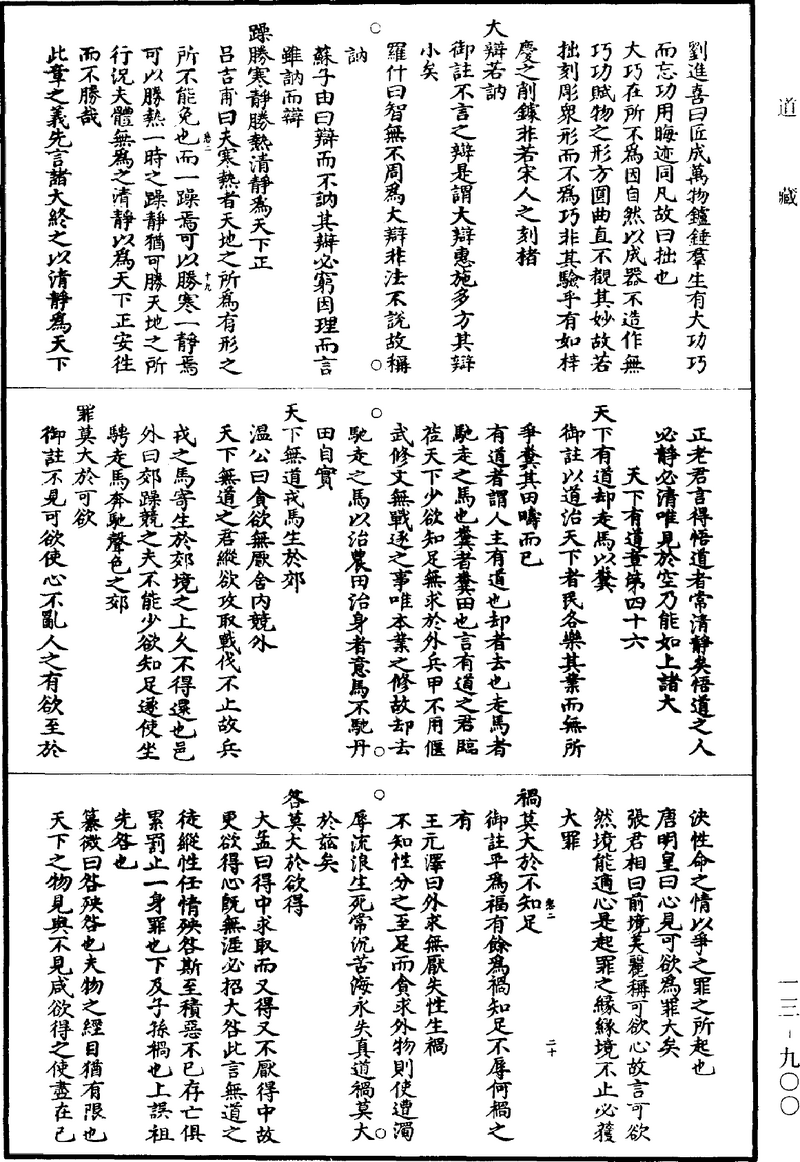 道藏
劉進喜曰匠成萬物鑪錘羣生有大功巧
而忘功用晦迹同凡故曰拙也
大巧在所不為因自然以成器不造作無
巧功賦物之形方圓曲直不觀其妙故若
拙刻彫衆形而不為巧非其驗乎有如梓
慶之削鐻非若宋人之刻楮
大辯若訥
御註不言之辯是謂大辯惠施多方其辯
小矣
羅什曰智無不周為大辯非法不説故稱
訥
蘇子由曰辯而不訥其辯必窮因理而言
雖訥而辯
躁勝寒靜勝熱清靜為天下正
呂吉甫曰夫寒熱者天地之所為有形之
所不能免也而一躁焉可以勝寒一靜焉
卷二 十九
可以勝熱一時之躁靜猶可勝天地之所
行況夫體無為之清靜以為天下正安徃
而不勝哉
此章之義先言諸大終之以清靜為天下
正老君言得悟道者常清靜矣悟道之人
必靜必清唯見於空乃能如上諸大
天下有道章第四十六
天下有道却走馬以糞
御註以道治天下者民各樂其業而無所
爭糞其田疇而已
有道者謂人主有道也却者去也走馬者
馳走之馬也糞者糞田也言有道之君臨
莅天下少欲知足無求於外兵甲不用偃
武修文無戰逐之事唯本業之修故却去
馳走之馬以治農田治身者意馬不馳丹
田自實
天下無道戎馬生於郊
溫公曰貪欲無厭舍內競外
天下無道之君縱欲攻取戰伐不止故兵
戎之馬寄生於郊境之上久不得還也邑
外曰郊躁競之夫不能少欲知足遂使坐
騁走馬奔馳聲色之郊
罪莫大於可欲
御註不見可欲使心不亂人之有欲至於
決性命之情以爭之罪之所起也
唐明皇曰心見可欲為罪大矣
張君相曰前境美麗稱可欲心故言可欲
然境能適心是起罪之緣緣境不止必獲
大罪
禍莫大於不知足
卷二 二十
御註平為福有餘為禍知足不辱何禍之
有
王元澤曰外求無厭失性生禍
不知性分之至足而貪求外物則使遭濁
辱流浪生死常沉苦海永失真道禍莫大
於茲矣
咎莫大於欲得
大孟曰得中求取而又得又不厭得中故
更欲得心既無涯必招大咎此言無道之
徒縱性任情殃咎斯至積惡不已存亡俱
累罰止一身罪也下及子孫禍也上誤祖
先咎也
纂微曰咎殃咎也夫物之經目猶有限也
天下之物見與不見咸欲得之使盡在己
一三-九〇〇